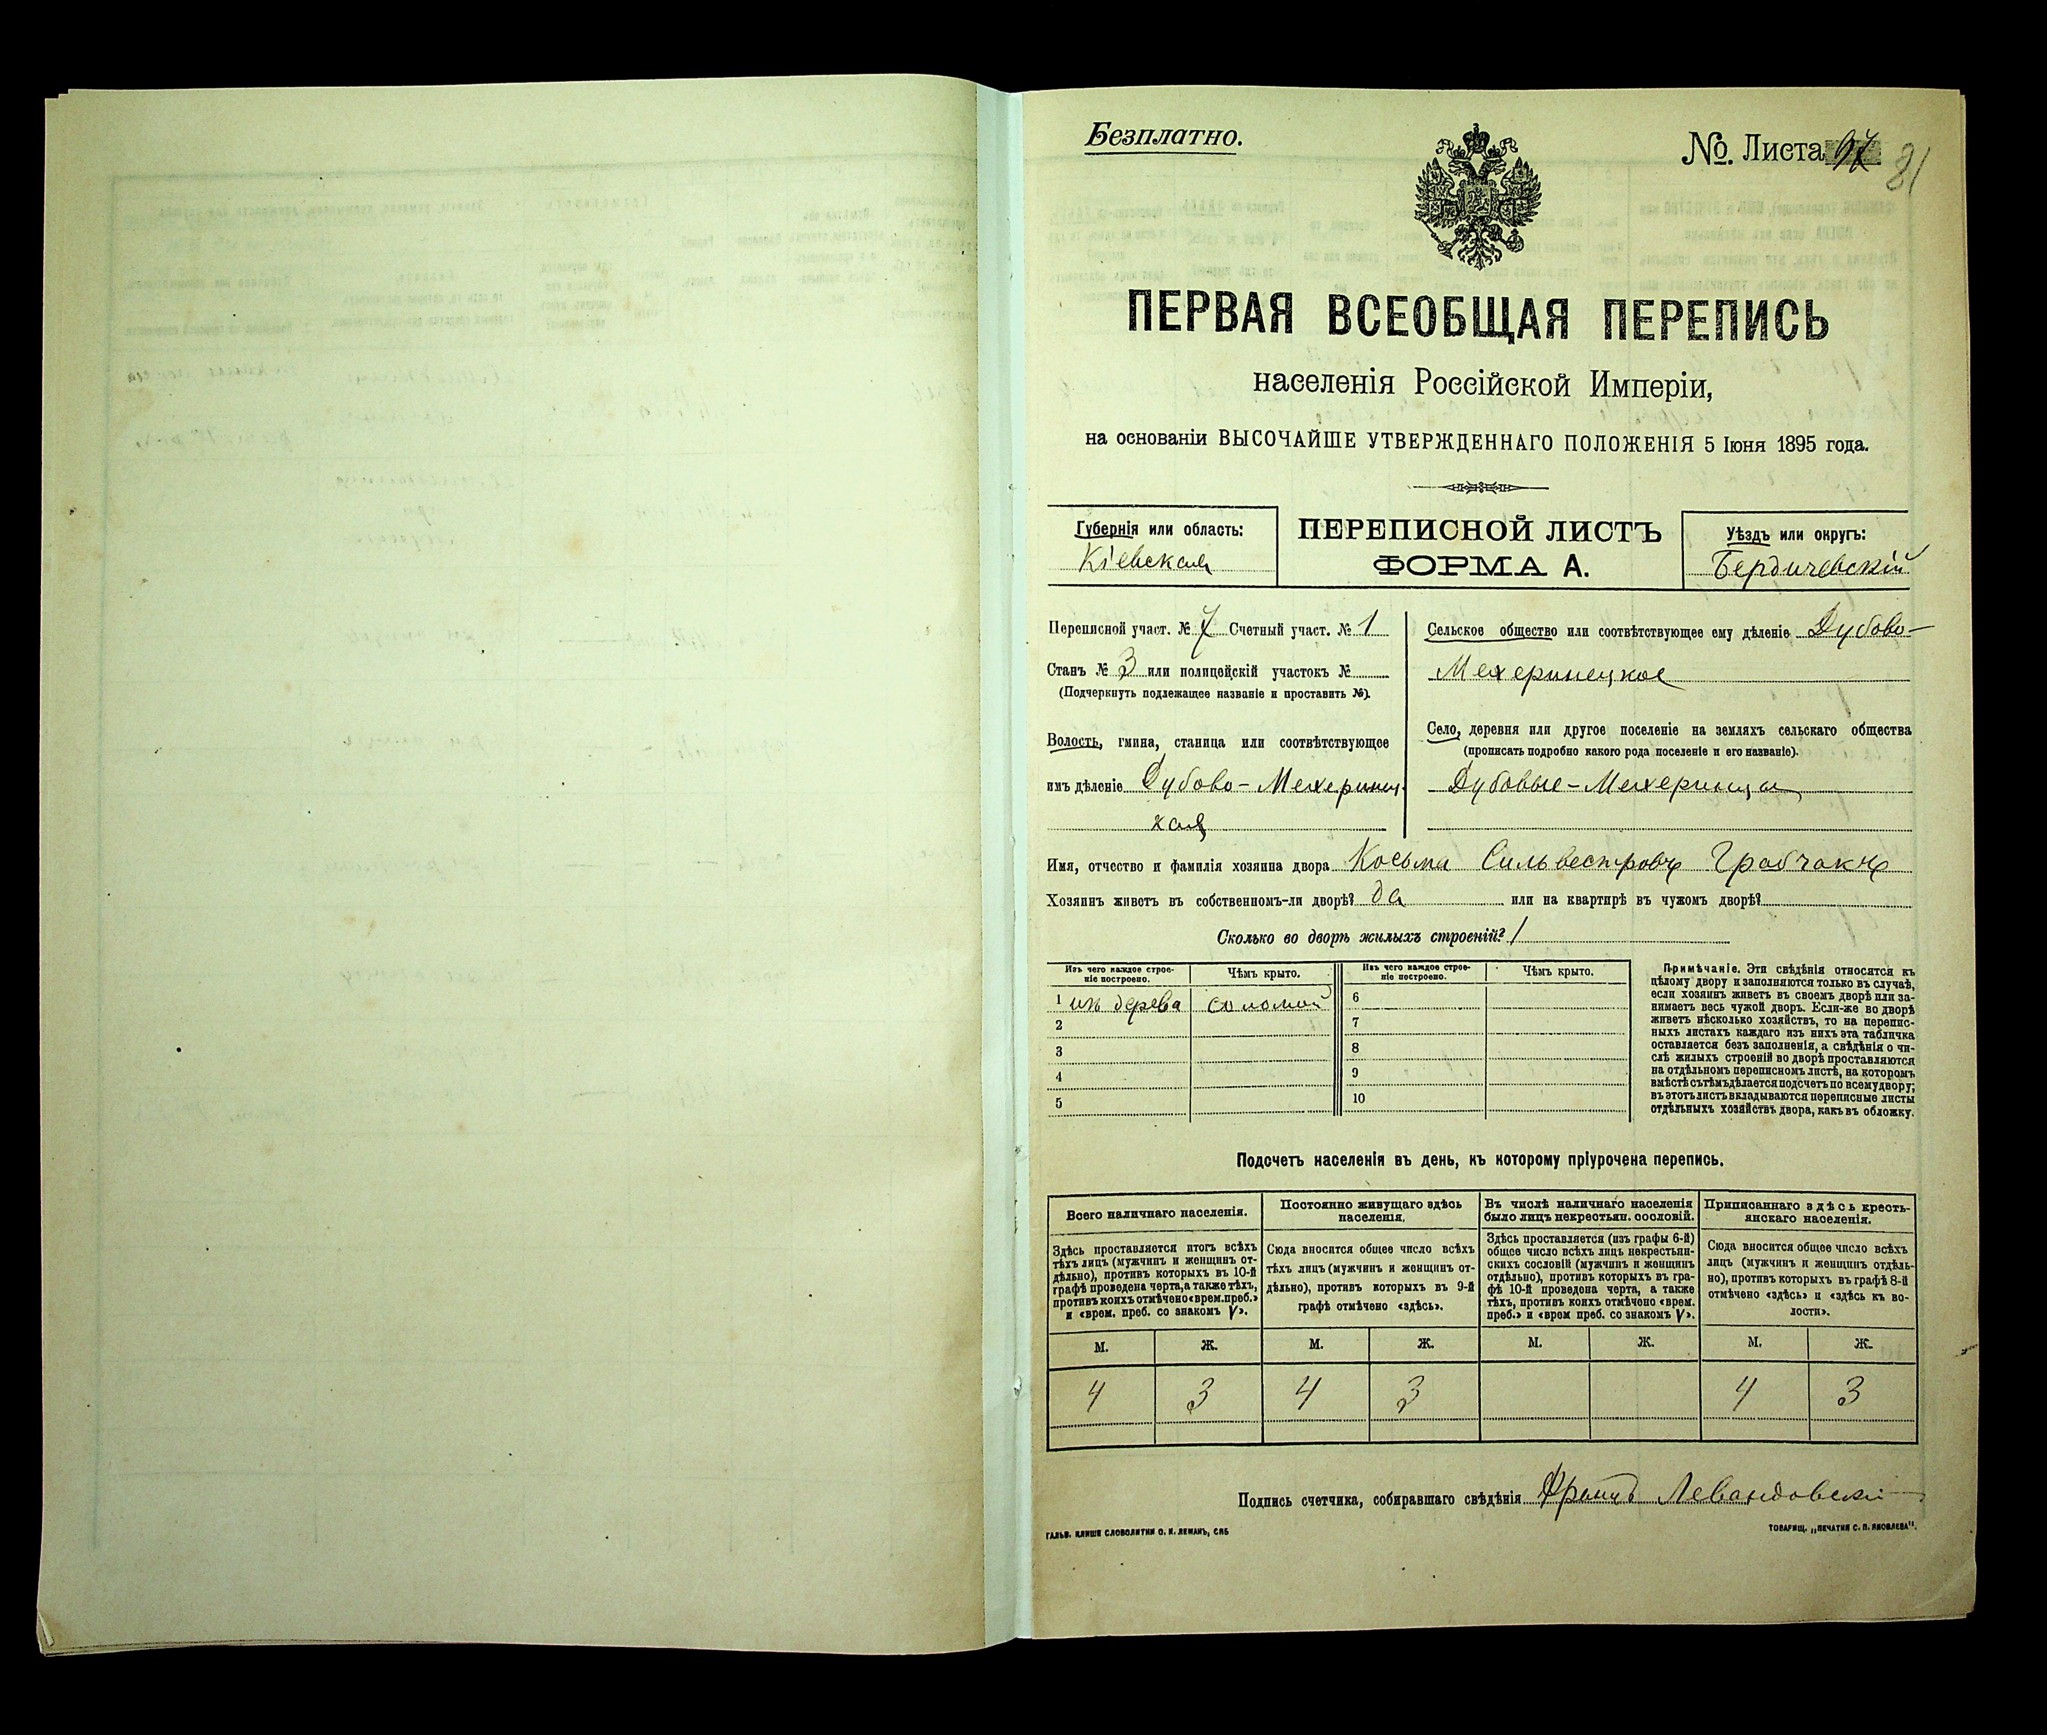 Безплатно.
№. Листа 81
ПЕРВАЯ ВСЕОБЩАЯ ПЕРЕПИСЬ
населенія Россійской Имперіи,
на основаніи ВЫСОЧАЙШЕ УТВЕРЖДЕННАГО ПОЛОЖЕНІЯ 5 Іюня 1895 года.
Губернія или область:
Кіевская
ПЕРЕПИСНОЙ ЛИСТЪ
ФОРМА А.
Уѣздъ или округъ:
Бердичевскій
Переписной участ. № 7 Счетный участ. № 1
Станъ № 3 или полицейскій участокъ №
(Подчеркнуть подлежащее названіе и проставить №).
Волость, гмина, станица или соотвѣтствующее
имъ дѣленіе Дубово-Мехеринец-
кая
Сельское общество или соотвѣтствующее ему дѣленіе Дубово-
Мехеринецкое
Село, деревня или другое поселеніе на земляхъ сельскаго общества
(прописать подробно какого рода поселеніе и его названіе).
Дубовые-Мехеринцы
Имя, отчество и фамилія хозяина двора Косьма Сильвестровъ Грабчакъ
Хозяинъ живетъ въ собственномъ-ли дворѣ? да или на квартирѣ въ чужомъ дворѣ?
Сколько во дворѣ жилыхъ строеній? 1
Изъ чего каждое строе-
ніе построено.
Чѣмъ крыто.
Изъ чего каждое строе-
ніе построено.
Чѣмъ крыто.
1 изъ дерева соломой
2
3
4
5
6
7
8
9
10
Примѣчаніе. Эти свѣдѣнія относятся къ
цѣлому двору и заполняются только въ случаѣ,
если хозяинъ живетъ въ своемъ дворѣ или за-
нимаетъ весь чужой дворъ. Если-же во дворѣ
живетъ нѣсколько хозяйствъ, то на перепис-
ныхъ листахъ каждаго изъ нихъ эта табличка
оставляется безъ заполненія, а свѣдѣнія о чи-
слѣ жилыхъ строеній во дворѣ проставляются
на отдѣльномъ переписномъ листѣ, на которомъ
вмѣстѣ съ тѣмъ дѣлается подсчетъ по всему двору;
въ этотъ листъ вкладываются переписные листы
отдѣльныхъ хозяйствъ двора, какъ въ обложку.
Подсчетъ населенія въ день, къ которому пріурочена перепись.
Всего наличнаго населенія.
Здѣсь проставляется итогъ всѣхъ
тѣхъ лицъ (мужчинъ и женщинъ от-
дѣльно), противъ которыхъ въ 10-й
графѣ проведена черта, а также тѣхъ,
противъ коихъ отмѣчено «врем. преб.»
и «врем. преб. со знакомъ V».
Постоянно живущаго здѣсь
населенія.
Сюда вносится общее число всѣхъ
тѣхъ лицъ (мужчинъ и женщинъ от-
дѣльно), противъ которыхъ въ 9-й
графѣ отмѣчено «здѣсь».
Въ числѣ наличнаго населенія
было лицъ некрестьян. сословій.
Здѣсь проставляется (изъ графы 6-й)
общее число всѣхъ лицъ некрестьян-
скихъ сословій (мужчинъ и женщинъ
отдѣльно), противъ которыхъ въ гра-
фѣ 10-й проведена черта, а также
тѣхъ, противъ коихъ отмѣчено «врем.
преб.» и «врем преб. со знакомъ V».
Приписаннаго здѣсь кресть-
янскаго населенія.
Сюда вносится общее число всѣхъ
лицъ (мужчинъ и женщинъ отдѣль-
но), противъ которыхъ въ графѣ 8-й
отмѣчено «здѣсь» и «здѣсь къ во-
лости».
М. Ж. М. Ж. М. Ж. М. Ж.
4 3 4 3 4 3
Подпись счетчика, собиравшаго свѣдѣнія Францъ Левандовскій
ГАЛЬВ. КЛИШЕ СЛОВОЛИТНИ О. И. ЛЕМАНЪ, СПБ
ТОВАРИЩ. „ПЕЧАТНЯ С. П. ЯКОВЛЕВА".